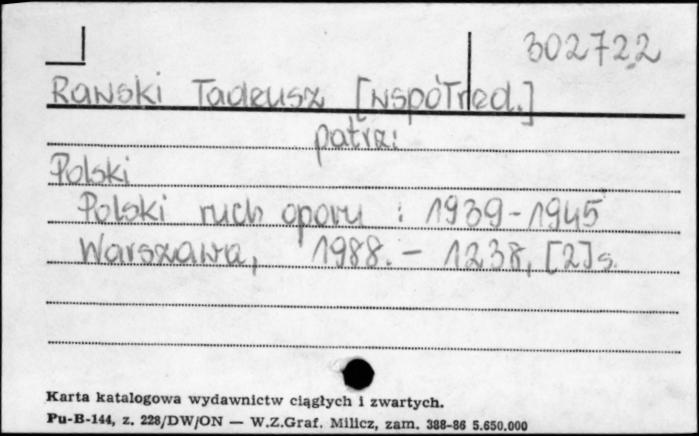 302722
Rawski Tadeusz [współred.]
patrz:
Polski
Polski ruch oporu : 1939-1945
Warszawa, 1988. - 1238, [2]s.
Karta katalogowa wydawnictw ciągłych i zwartych.
Pu-B-144, z. 228/DW/ON — W.Z.Graf. Milicz, zam. 388-86 5.650.000